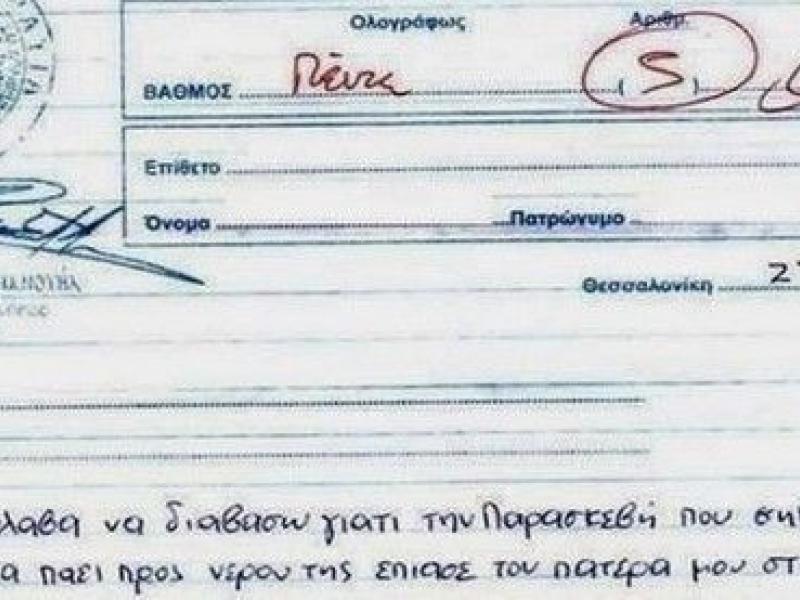 Ολογράφως Αριθμ.
ΒΑΘΜΟΣ Πέντε (5)
Επίθετο
Όνομα Πατρώνυμο
Θεσσαλονίκη
να διαβασω γιατι την Παρασκεβή που
παει προς νερου της επιασε τον πατερα μου